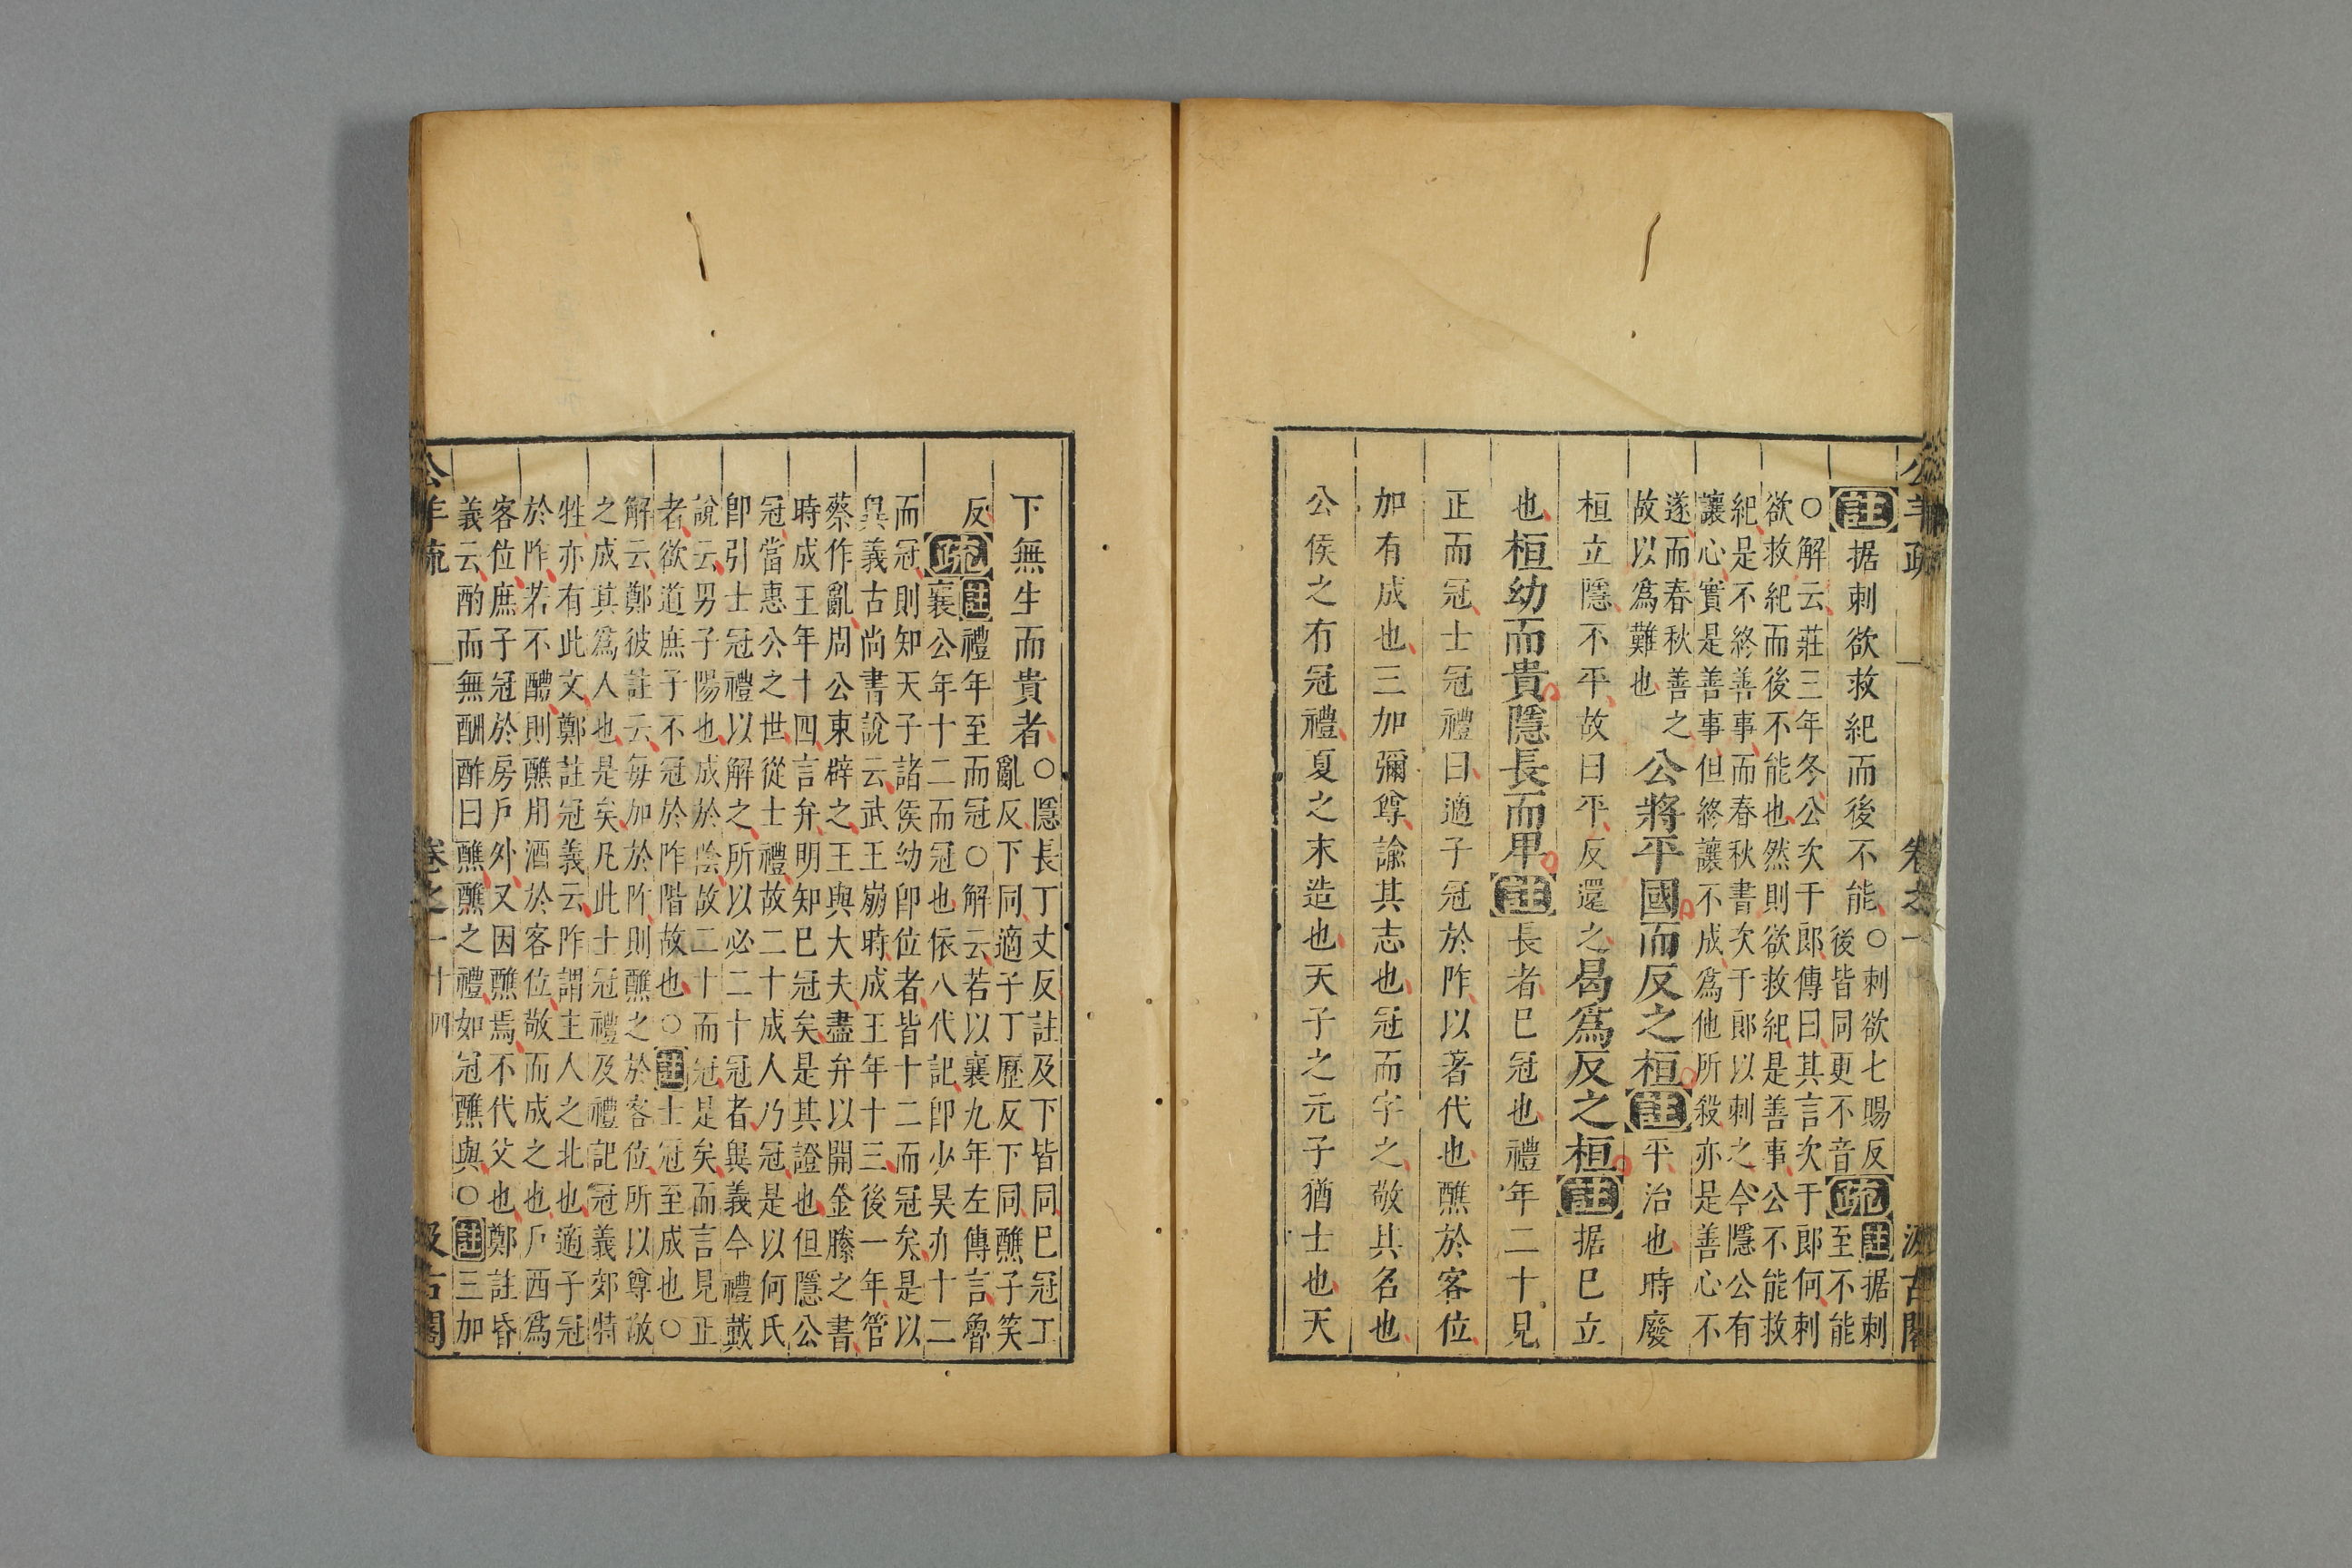 公羊疏 一 卷之一 汲古閣
註据刺欲救紀而後不能○刺欲七賜反
後皆同更不音疏註据刺
至不能
○解云莊三年冬公次于郎傳曰其言次于郎何刺
欲救紀而後不能也然則欲救紀是善事公不能救
紀是不終善事而春秋書次于郎以刺之今隱公有
讓心實是善事但終讓不成爲他所殺亦是善心不
遂而春秋善之
故以爲難也公將平國而反之桓註平治也時廢
桓立隱不平故曰平反還之曷爲反之桓註据已立
也桓幼而貴隱長而卑註長者已冠也禮年二十見
正而冠士冠禮曰適子冠於阼以著代也醮於客位
加有成也三加彌尊諭其志也冠而字之敬其名也
公侯之有冠禮夏之末造也天子之元子猶士也天
下無生而貴者○隱長丁丈反註及下皆同已冠工
亂反下同適子丁歷反下同醮子笑
反疏註禮年至而冠○解云若以襄九年左傳言魯
襄公年十二而冠也依八代記卽少昊亦十二
而冠則知天子諸侯幼卽位者皆十二而冠矣是以
異義古尚書說云武王崩時成王年十三後一年管
蔡作亂周公東辟之王與大夫盡弁以開金縢之書
時成王年十四言弁明知已冠矣是其證也但隱公
冠當惠公之世從士禮故二十成人乃冠是以何氏
卽引士冠禮以解之所以必二十冠者異義今禮戴
說云男子陽也成於陰故二十而冠是矣而言見正
者欲道庶子不冠於阼階故也○註士冠至成也○
解云鄭彼註云每加於阼則醮之於客位所以尊敬
之成其爲人也是矣凡此士冠禮及禮記冠義郊特
牲亦有此文鄭註冠義云阼謂主人之北也適子冠
於阼若不醴則醮用酒於客位敬而成之也戶西爲
客位庶子冠於房戶外又因醮焉不代父也鄭註昏
義云酌而無酬酢曰醮醮之禮如冠醮與○註三加
公羊疏 一 卷之一 十四 汲古閣